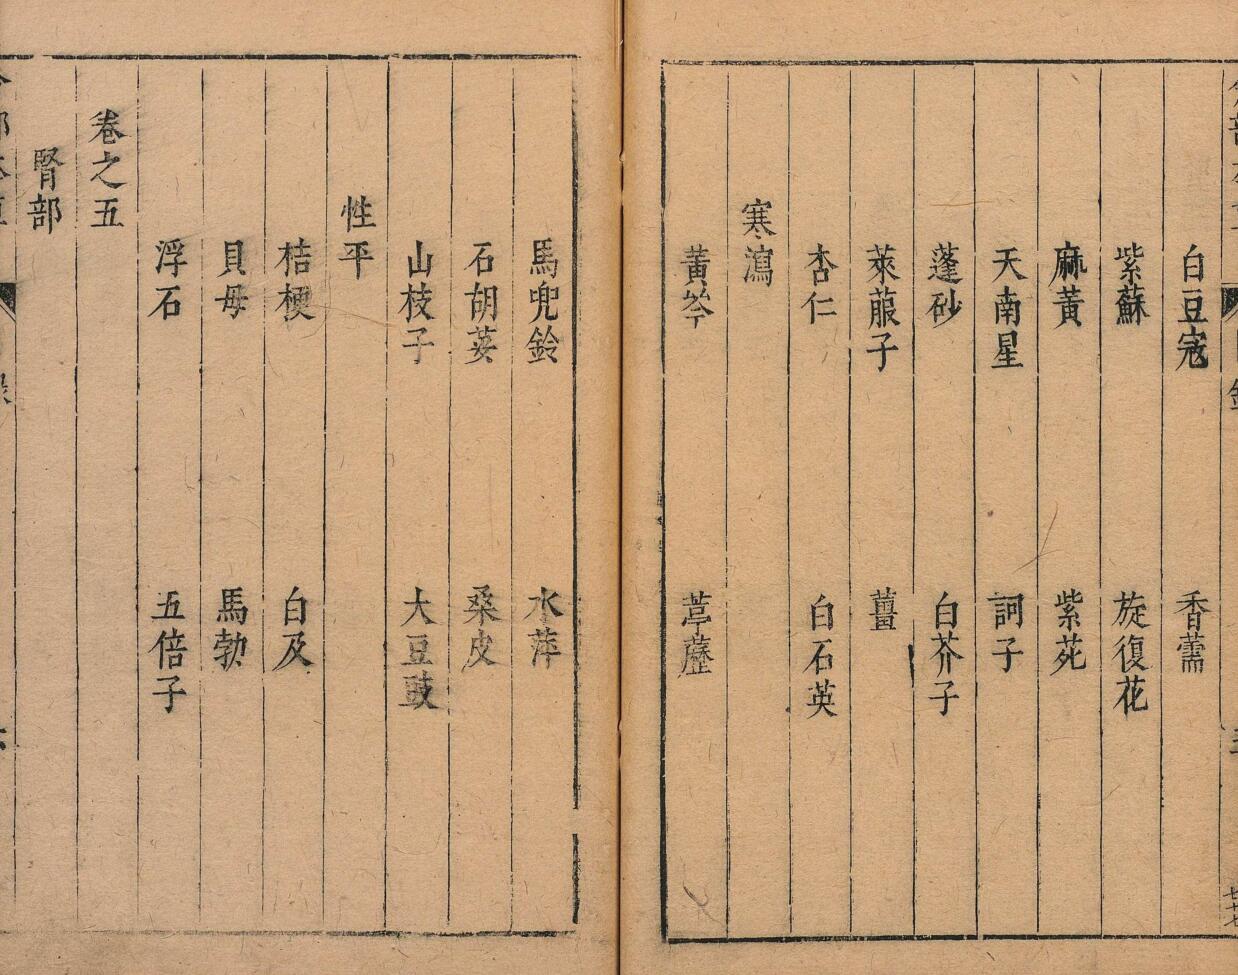 白豆寇 香薷
紫蘇 旋復花
麻黃 紫菀
天南星 訶子
蓬砂 白芥子
萊菔子 薑
杏仁 白石英
寒瀉
黃芩 葶藶
馬兜鈴 水萍
石胡荽 桑皮
山枝子 大豆豉
性平
桔梗 白及
貝母 馬勃
浮石 五倍子
卷之五
腎部